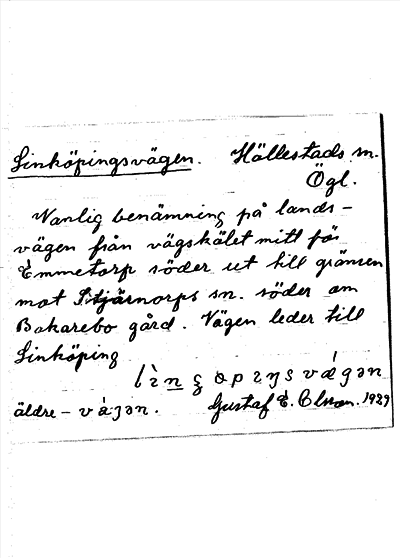 Linköpingsvägen. Hällestads sn.
Ögl.
Vanlig benämning på lands-
vägen från vägskälet mitt för
Emmetorp söder ut till gränsen
mot Stjärnorps sn. söder om
Bakarebo gård. Vägen leder till
Linköping
äldre – Gustaf E. Olsson. 1929